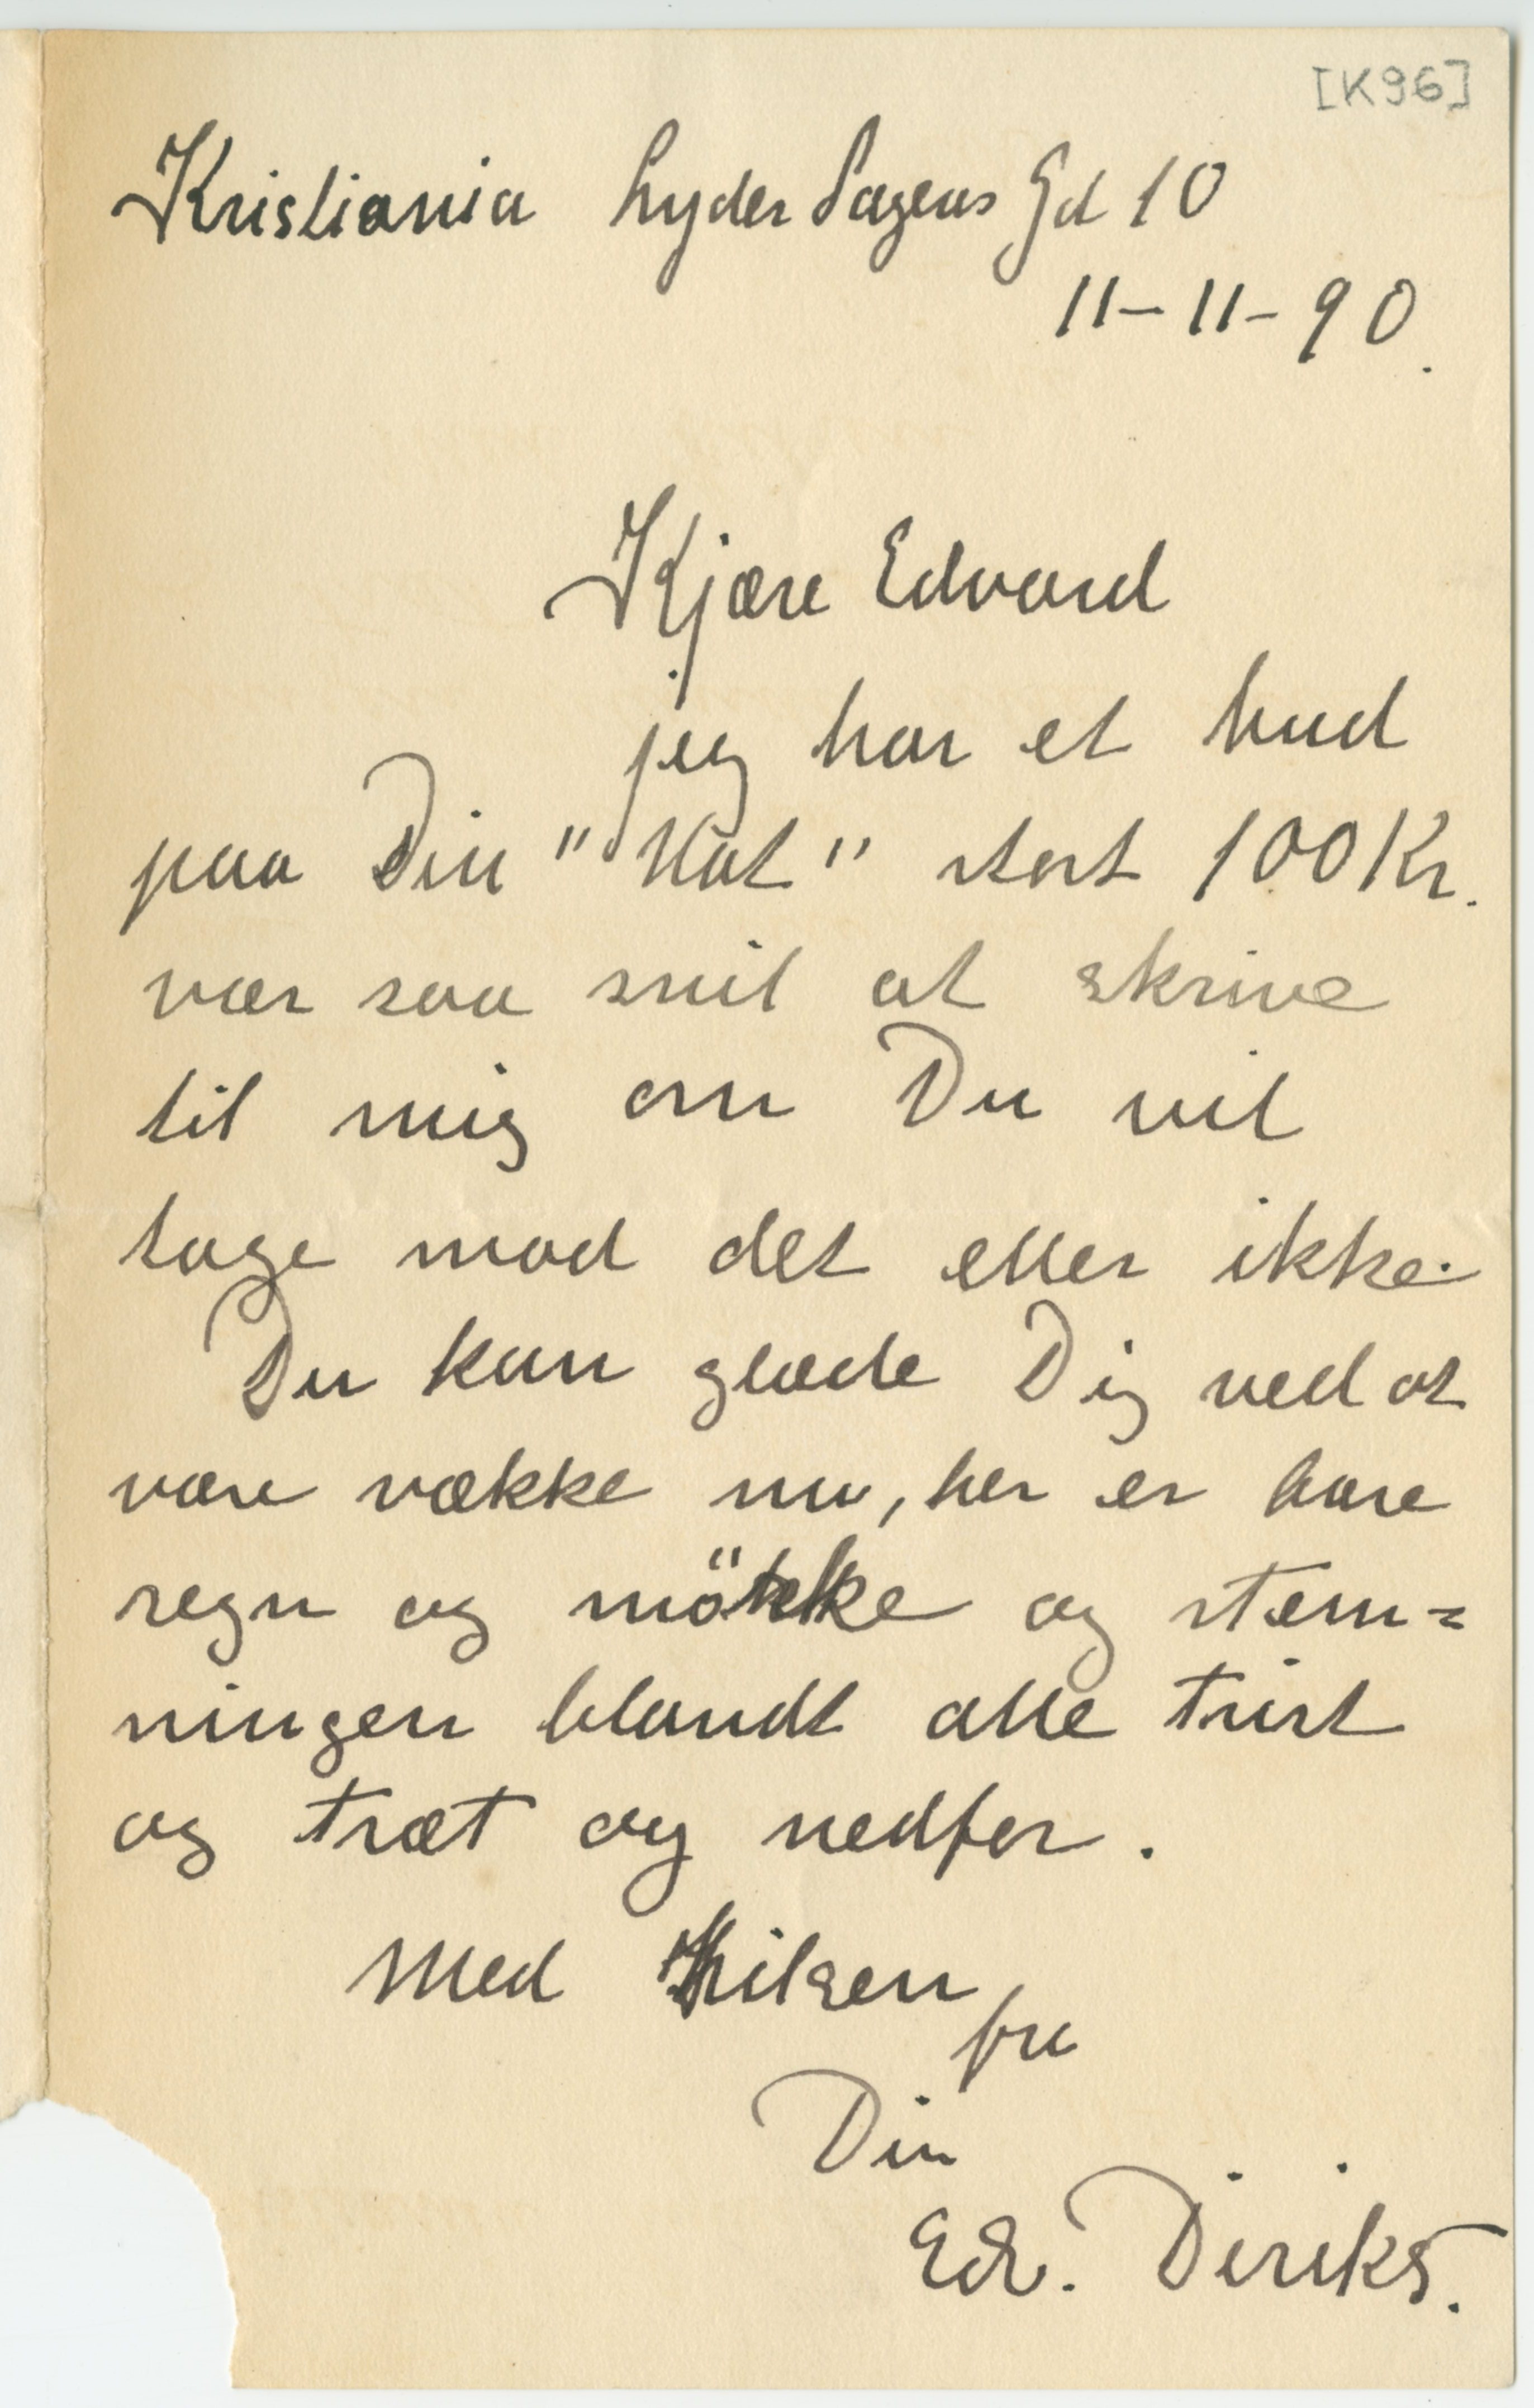 [K96]
Kristiania Lyder Sagens Gd 10
11-11-90.
Kjære Edvard
jeg har et bud
paa Din "Nat" stort 100 Kr.
vær saa snil at skrive
til mig om Du vil
tage mod det eller ikke.
Du kan glæde Dig ved at
være vække nu, her er bare
regn og mörke og stem=
ningen blandt alle trist
og træt og nedfor.
Med Hilsen
fra
Din
Edv. Diriks.